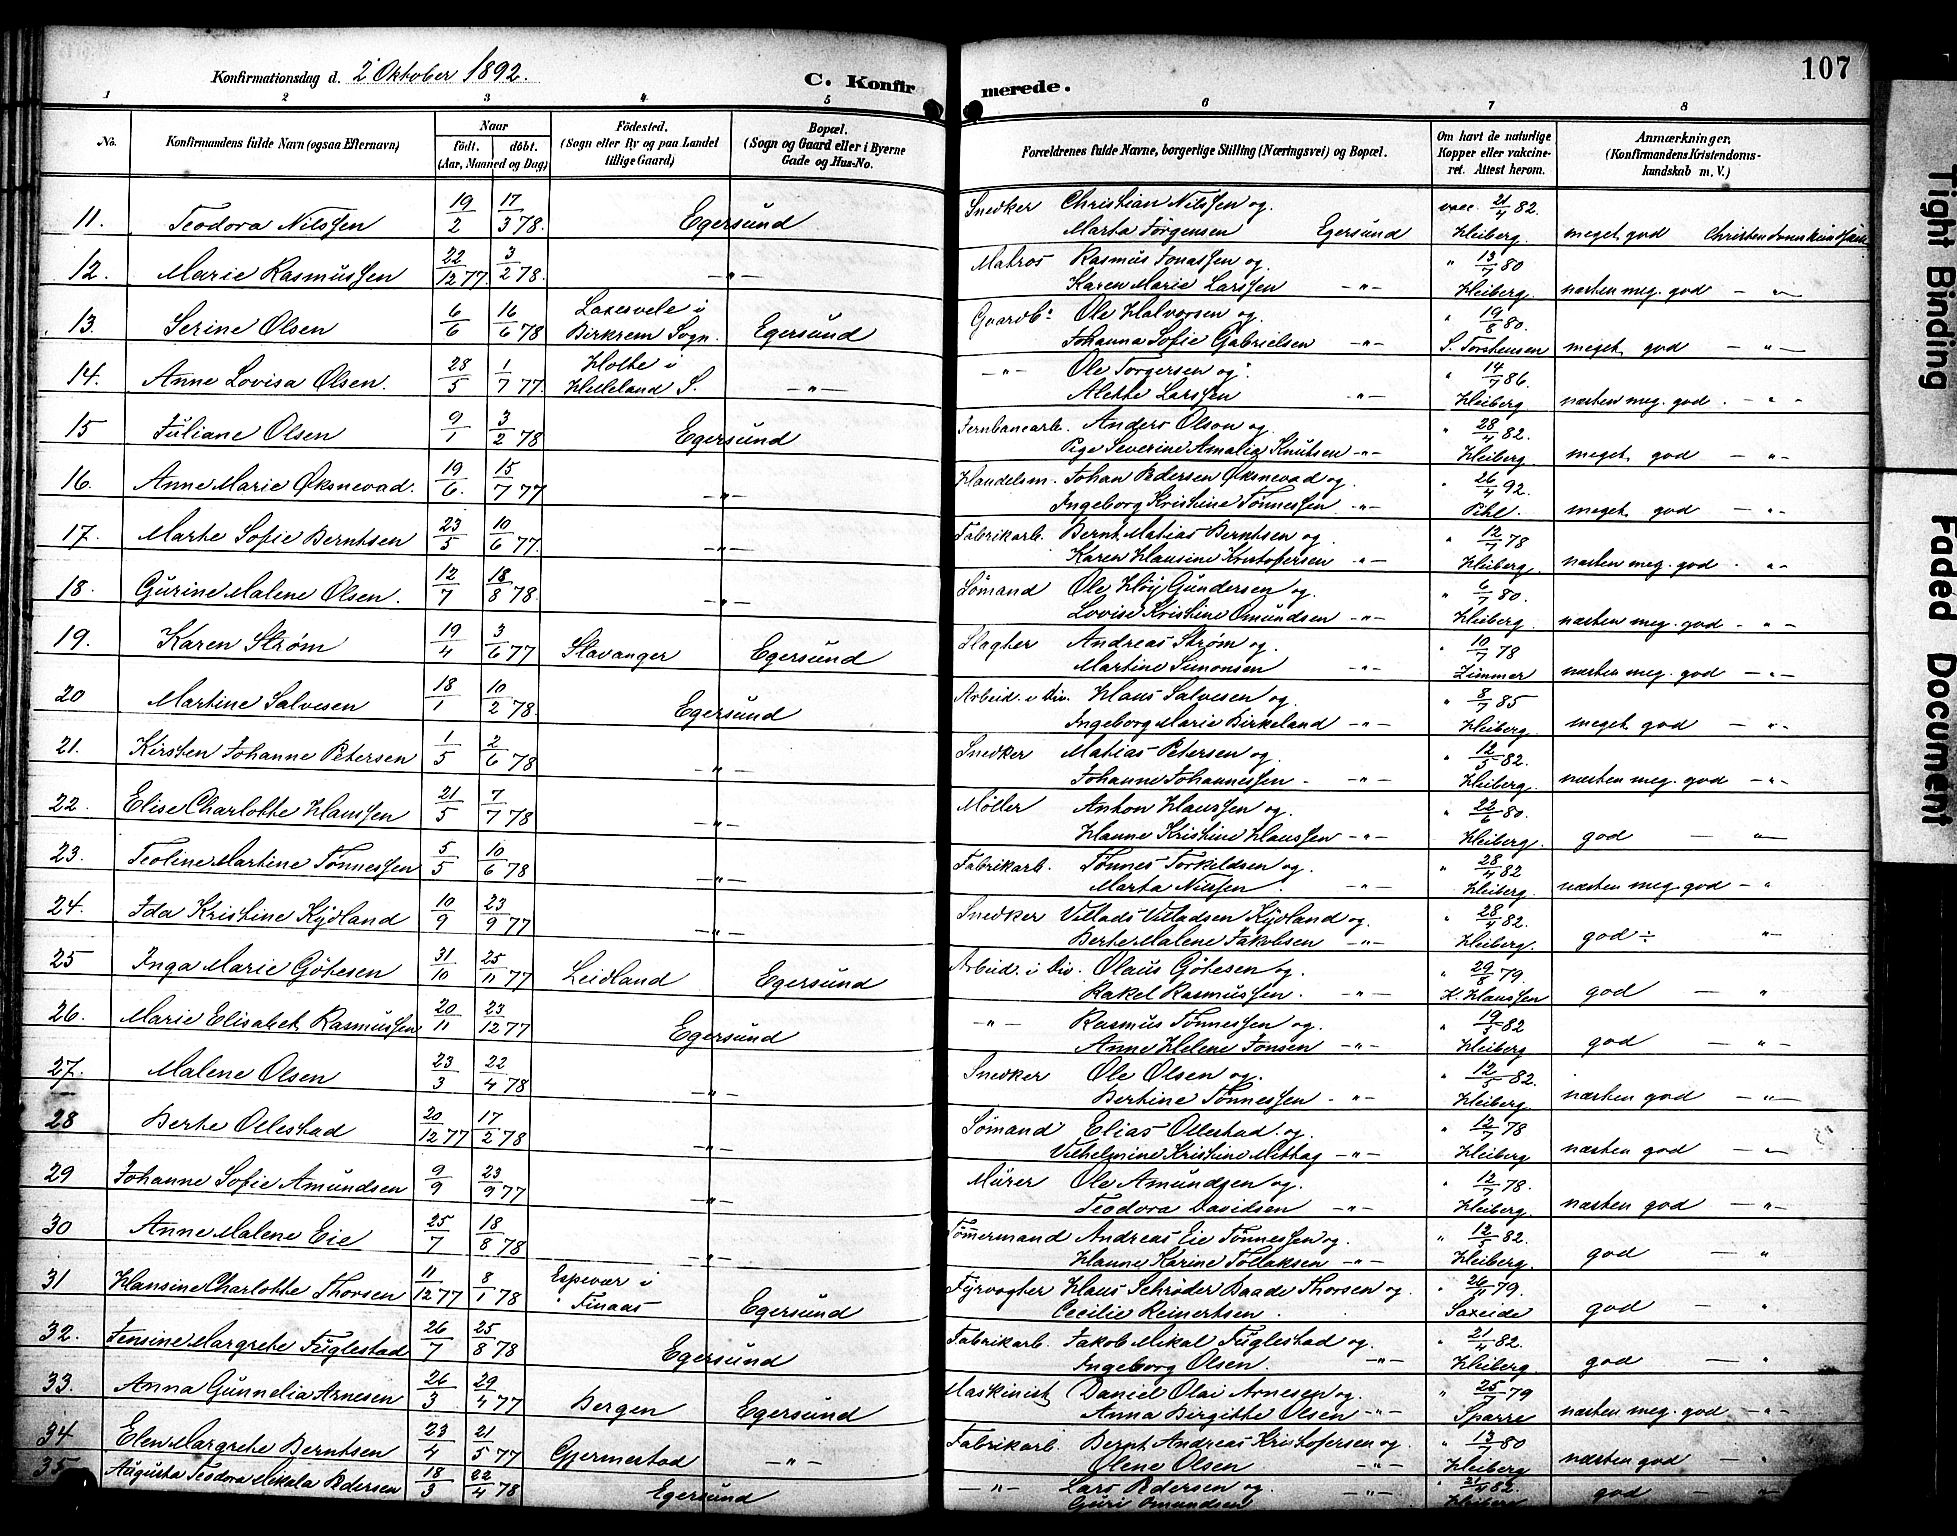 107
Konfirmationsdag d. 2 Oktober 1892.
C. Konfirmerede.
1 2 3 4 5 6 7 8
No. Konfirmandens fulde Navn (ogsaa Efternavn) Naar födt. döbt. (Aar, Maaned og Dag) Födested. (Sogn eller By og paa Landet tillige Gaard) Bopæl. (Sogn og Gaard eller i Byerne Gade og Hus-No. Forældrenes fulde Navne, borgerlige Stilling (Næringsvei) og Bopæl. Om havt de naturlige Kopper eller vaccineret. Attest herom. Anmærkninger. (Konfirmandens Kristendomskundskab m. V.)
11. Teodora Nilssen 19/2 17/3 78. Egersund Snedker Christian Nilssen og vacc. 21/4 82.
Marta Jörgensen Egersund Heiberg. meget god Christendomskundskab
12. Marie Rasmussen 22/12 77. 3/2 78. —"— Matros Rasmus Jonassen og " 13/7 80
Karen Marie Larssen —"— Heiberg. næsten meg. god —"—
13. Serine Olsen 6/6 16/6 78 Laxesvele i Birkrem Sogn. Egersund Gaardb. Ole Halvorsen og " 19/8 80.
Johanna Sofie Gabrielsen —"— S. Torstensen meget god —"—
14. Anne Lovisa Olsen. 28/5 1/7 77. Holte i Helleland S. —"— —"— Ole Torgersen og " 14/7 86.
Alette Larssen —"— Heiberg næsten meg. god. —"—
15 Juliane Olsen 9/1 3/2 78 Egersund Jernbanearb. Anders Olson og " 28/4 82.
Pige Severine Amalia Knutsen —"— Heiberg. meget god —"—
16. Anne Marie Øksnevad. 19/6. 15/7 77 —"— Handelsm. Johan Pedersen Øksnevad og " 26/4 92.
Ingeborg Kristine Tønnessen. —"— Pihl. meget god —"—
17. Marte Sofie Berntsen 23/5 10/6 77. —"— Fabrikarb. Bernt Matias Berntsen og " 12/7 78
Karen Hansine Kristofersen —"— Heiberg. næsten meg. god. —"—
18. Gurine Malene Olsen. 12/7 18/8 78. —"— Sømand Ole Høy Gundersen og " 6/7 80.
Lovise Kristine Omundsen —"— Heiberg. næsten meg. god —"—
19. Karen Strøm 19/4 3/6 77 Stavanger Egersund Slagter Andreas Strøm og " 10/7 78
Martine Simonsen —"— Zimmer næsten meg. god —"—
20 Martine Salvesen 18/1 10/2 78. Egersund Arbeid. i Div. Hans Salvesen og " 8/7 85
Ingeborg Marie Birkeland —"— Heiberg. meget god —"—
21. Kirsten Johanne Petersen 1/5 2/6 78 —"— Snedker Matias Petersen og " 12/5 82.
Johanne Johannessen —"— Heiberg. næsten meg. god —"—
22. Elise Charlotte Hanssen 21/5 7/7 78 —"— Møller Anton Hanssen og " 22/6 80.
Hanne Kristine Hanssen —"— Heiberg. god —"—
23. Teoline Martine Tønnessen 5/5 10/6 78 —"— Fabrikarb. Tønnes Torkildsen og " 28/4 82
Marta Nilssen. —"— Heiberg. næsten meg. god —"
24. Ida Kristine Kydland 10/9 23/9 77 —"— Snedker Villads Villadsen Kydland og " 28/4 82.
Berte Malene Jakobsen —"— Heiberg. god ÷ "
25 Inga Marie Götesen 31/10 25/11 77 Leidland Egersund Arbeid. i Div. Olaus Götesen og " 29/8 79
Rakel Rasmussen. —"— K. Hanssen god — "
26. Marie Elisabet Rasmussen 20/11 23/12 77 Egersund —"— Rasmus Tønnessen og " 19/5 82
Anne Helene Jonsen —"— Heiberg god —"—
27. Malene Olsen 23/3 22/4 78 —"— Snedker Ole Olsen og " 12/5 82.
Bertine Tønnessen —"— Heiberg. næsten god —"—
28 Berte Ollestad 20/12 77 17/2 78 —"— Sømand Elias Ollestad og " 12/7 78
Vilhelmine Kristine Mittag —"— Heiberg næsten god —"—
29 Johanne Sofie Amundsen 9/9 23/9 77 —"— Mürer Ole Amundsen og " 12/7 78.
Teodora Davidsen —"— Heiberg. næsten god —"—
30 Anne Malene Eie 25/7 18/8 78 —"— Tømmermand Andreas Eie Tønnessen og " 12/5 82.
Hanne Karine Tollaksen —"— Heiberg. god —"
31 Hansine Charlotte Thorsen 11/12 77 8/1 78 Espevær i Finaas Egersund Fyrvogter Hans Schrøder Baade Thorsen og " 26/4 79.
Cecilie Reinertsen. Saxeide god — "
32. Jensine Margrete Fuglestad 26/7 25/8 78 Egersund Fabrikarb. Jakob Mikal Fuglestad og " 21/4 82.
Ingeborg Olsen. —"— Heiberg. god — "
33. Anna Gunnelia Arnesen 26/3 29/4 77 Bergen Egersund Maskinist Daniel Olai Arnesen og " 25/7 79
Anna Birgitte Olsen —"— Sparre næsten meg. god —"—
34 Elen Margrete Berntsen 23/4 21/5 77 Gjermestad —"— Fabrikarb. Bernt Andreas Kristofersen og " 13/7 80
Olene Olsen —"— Heiberg næsten god — "
35 Augusta Teodora Mikala Pedersen 18/3 22/4 78 Egersund —"— Lars Pedersen og " 21/4 82
Guri Omundsen —"— Heiberg god — "
Tight Binding
Faded Document